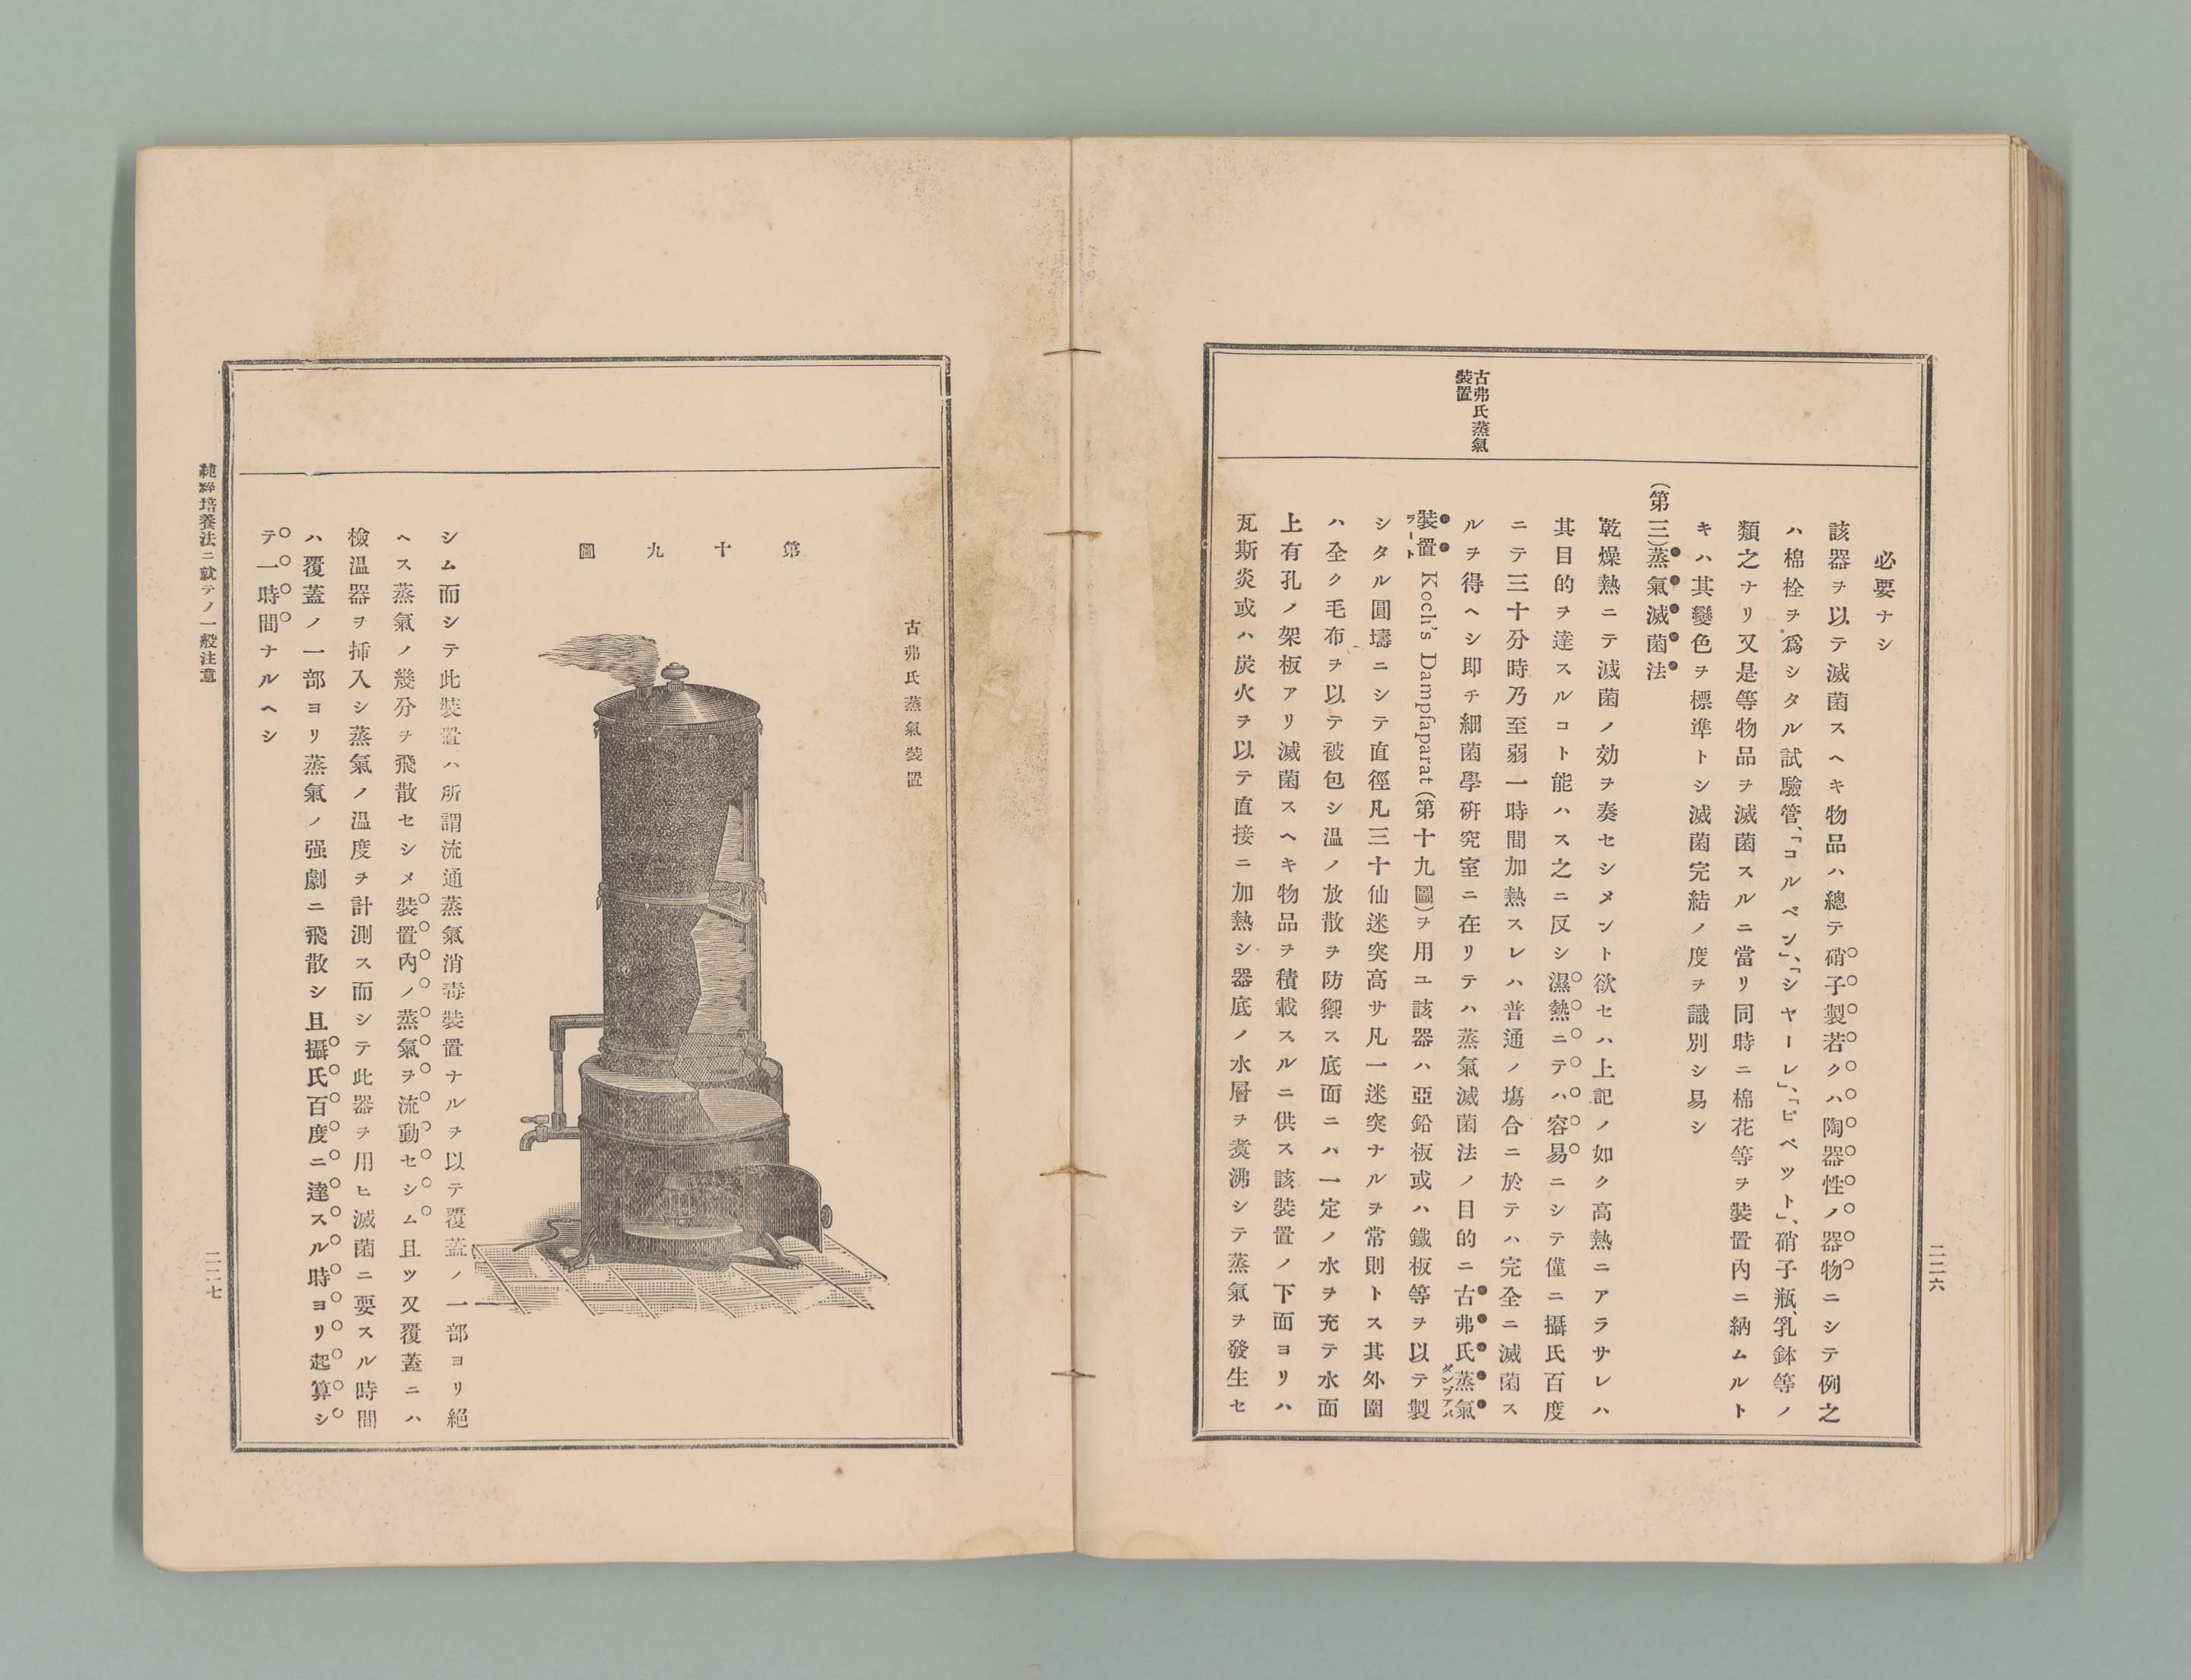 古弗氏蒸氣
裝置
必要ナシ
該器ヲ以テ滅菌スヘキ物品ハ總テ硝子製若クハ陶器性ノ器物ニシテ例之
ハ棉栓ヲ爲シタル試驗管、「コルベン」、「シヤーレ」、「ピペツト」、硝子瓶、乳鉢等ノ
類之ナリ又是等物品ヲ滅菌スルニ當リ同時ニ棉花等ヲ裝置內ニ納ムルト
キハ其變色ヲ標準トシ滅菌完結ノ度ヲ識別シ易シ
(第三)蒸氣滅菌法
乾燥熱ニテ滅菌ノ効ヲ奏セシメント欲セハ上記ノ如ク高熱ニアラサレハ
其目的ヲ達スルコト能ハス之ニ反シ濕熱ニテハ容易ニシテ僅ニ攝氏百度
ニテ三十分時乃至弱一時間加熱スレハ普通ノ塲合ニ於テハ完全ニ滅菌ス
ルヲ得ヘシ即チ細菌學硏究室ニ在リテハ蒸氣滅菌法ノ目的ニ古弗氏蒸氣
ダンプアパ
裝置 Koch's Dampfaparat (第十九圖)ヲ用ユ該器ハ亞鉛板或ハ鐵板等ヲ以テ製
ラート
シタル圓壔ニシテ直徑凡三十仙迷突高サ凡一迷突ナルヲ常則トス其外圍
ハ全ク毛布ヲ以テ被包シ温ノ放散ヲ防禦ス底面ニハ一定ノ水ヲ充テ水面
上有孔ノ架板アリ滅菌スヘキ物品ヲ積載スルニ供ス該裝置ノ下面ヨリハ
瓦斯炎或ハ炭火ヲ以テ直接ニ加熱シ器底ノ水層ヲ煑沸シテ蒸氣ヲ發生セ
二二六
古弗氏蒸氣裝置
第十九圖
シム而シテ此裝置ハ所謂流通蒸氣消毒裝置ナルヲ以テ覆蓋ノ一部ヨリ絕
ヘス蒸氣ノ幾分ヲ飛散セシメ裝置內ノ蒸氣ヲ流動セシム且ツ又覆蓋ニハ
檢温器ヲ揷入シ蒸氣ノ温度ヲ計測ス而シテ此器ヲ用ヒ滅菌ニ要スル時間
ハ覆蓋ノ一部ヨリ蒸氣ノ强劇ニ飛散シ且攝氏百度ニ達スル時ヨリ起算シ
テ一時間ナルヘシ
純粹培養法ニ就テノ一般注意
二二七